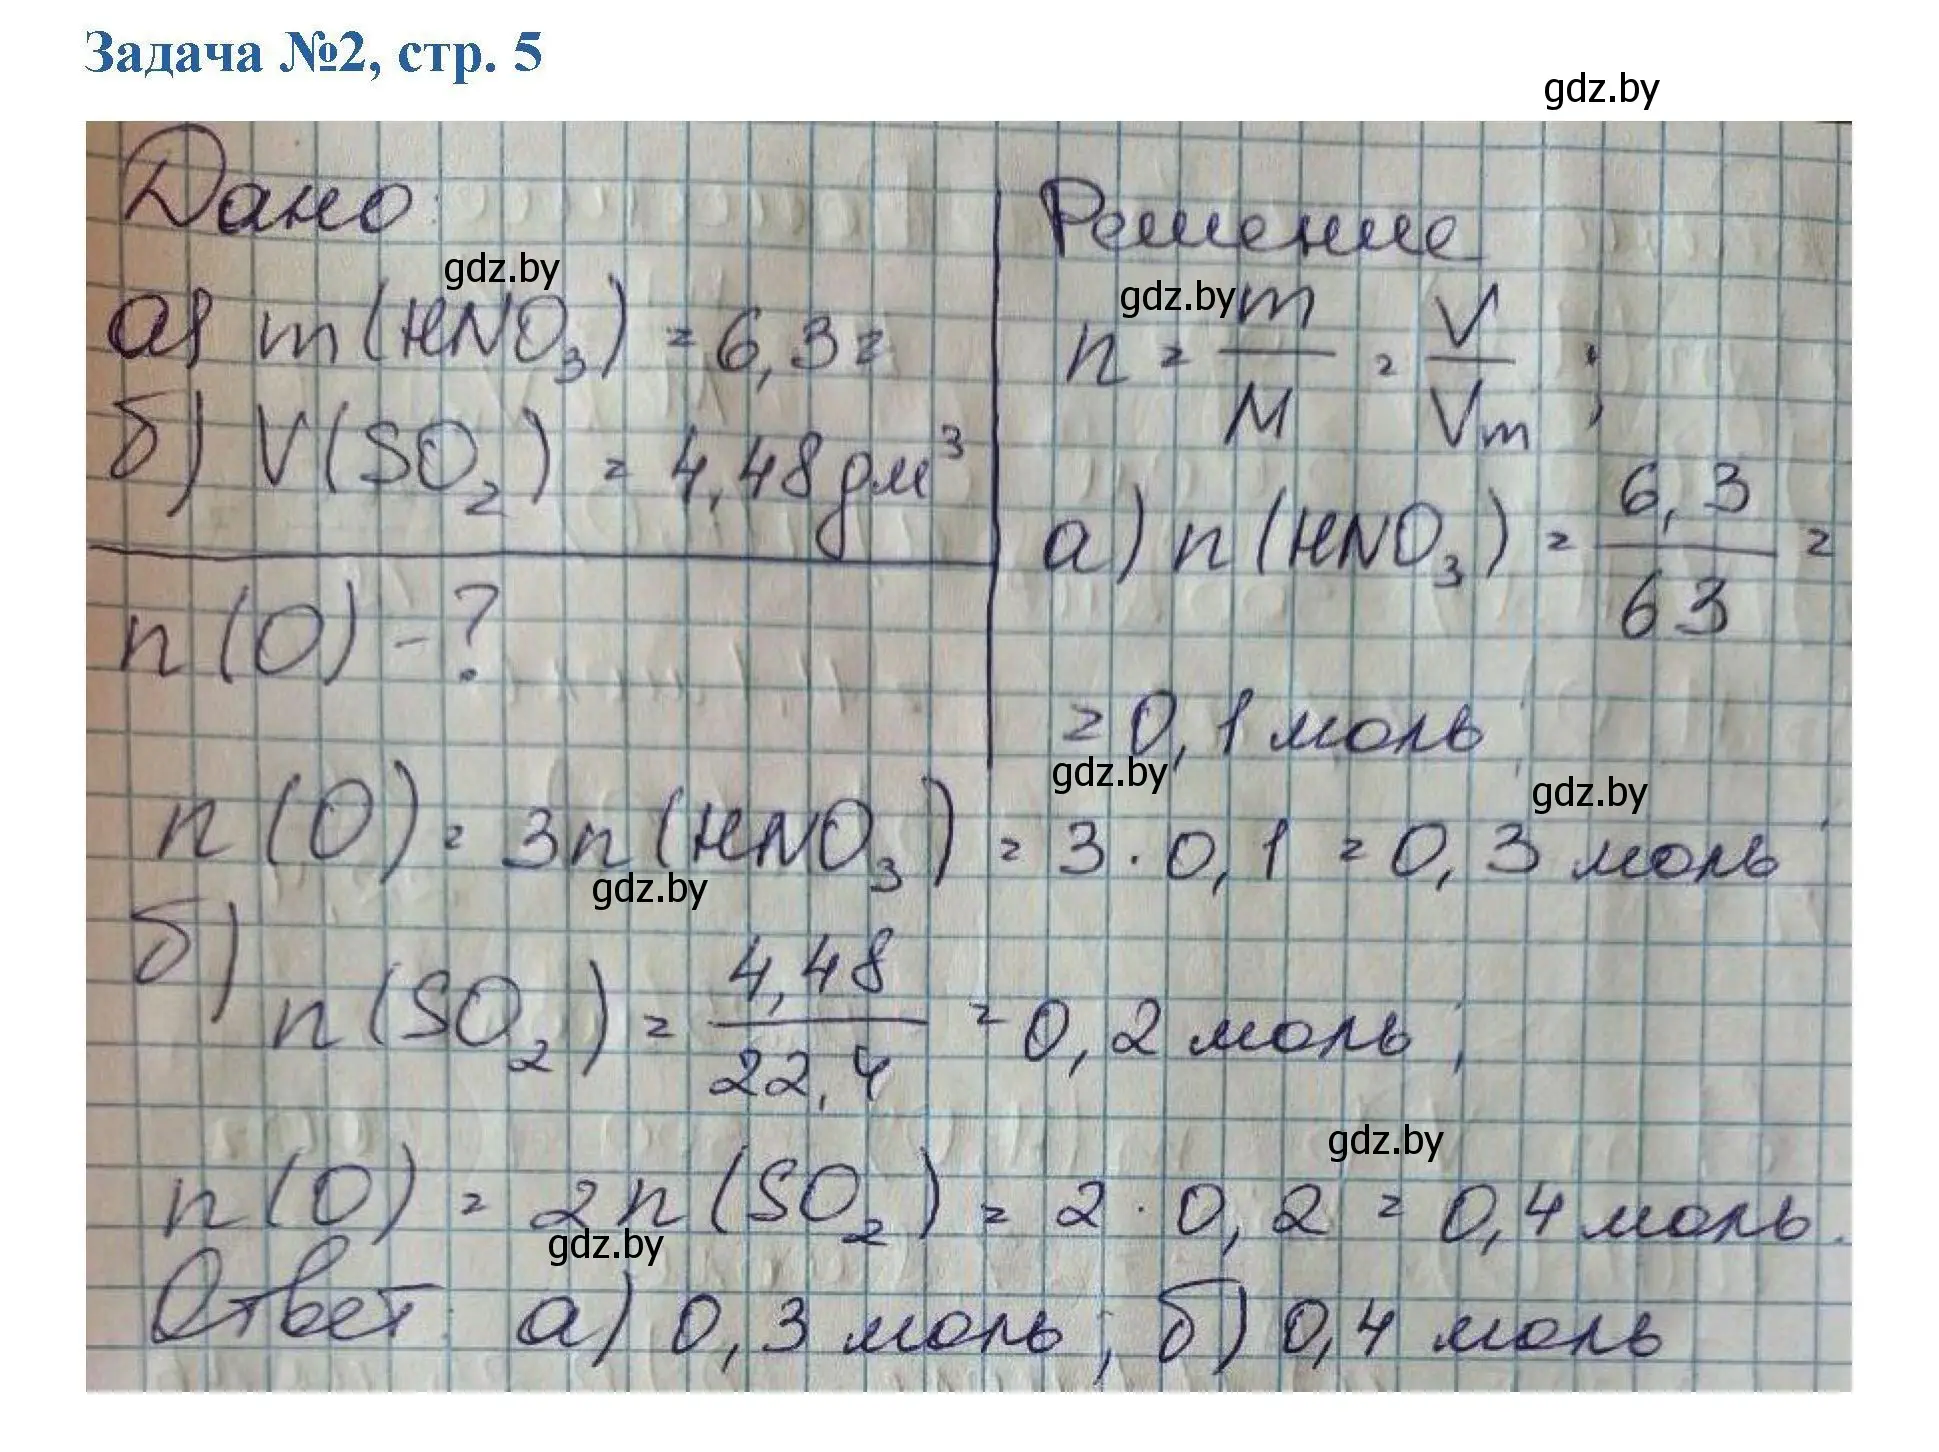 Задача №2, стр. 5
gdz.by
Дано:
а) m(HNO₃) = 6,3 г
gdz.by
б) V(SO₂) = 4,48 дм³
n(O) - ?
Решение
gdz.by
n = m/M = V/Vm ;
а) n(HNO₃) = 6,3/63 =
= 0,1 моль
gdz.by
gdz.by
n(O) = 3n(HNO₃) = 3 · 0,1 = 0,3 моль
gdz.by
б)
n(SO₂) = 4,48/22,4 = 0,2 моль;
gdz.by
n(O) = 2n(SO₂) = 2 · 0,2 = 0,4 моль.
gdz.by
Ответ: а) 0,3 моль; б) 0,4 моль